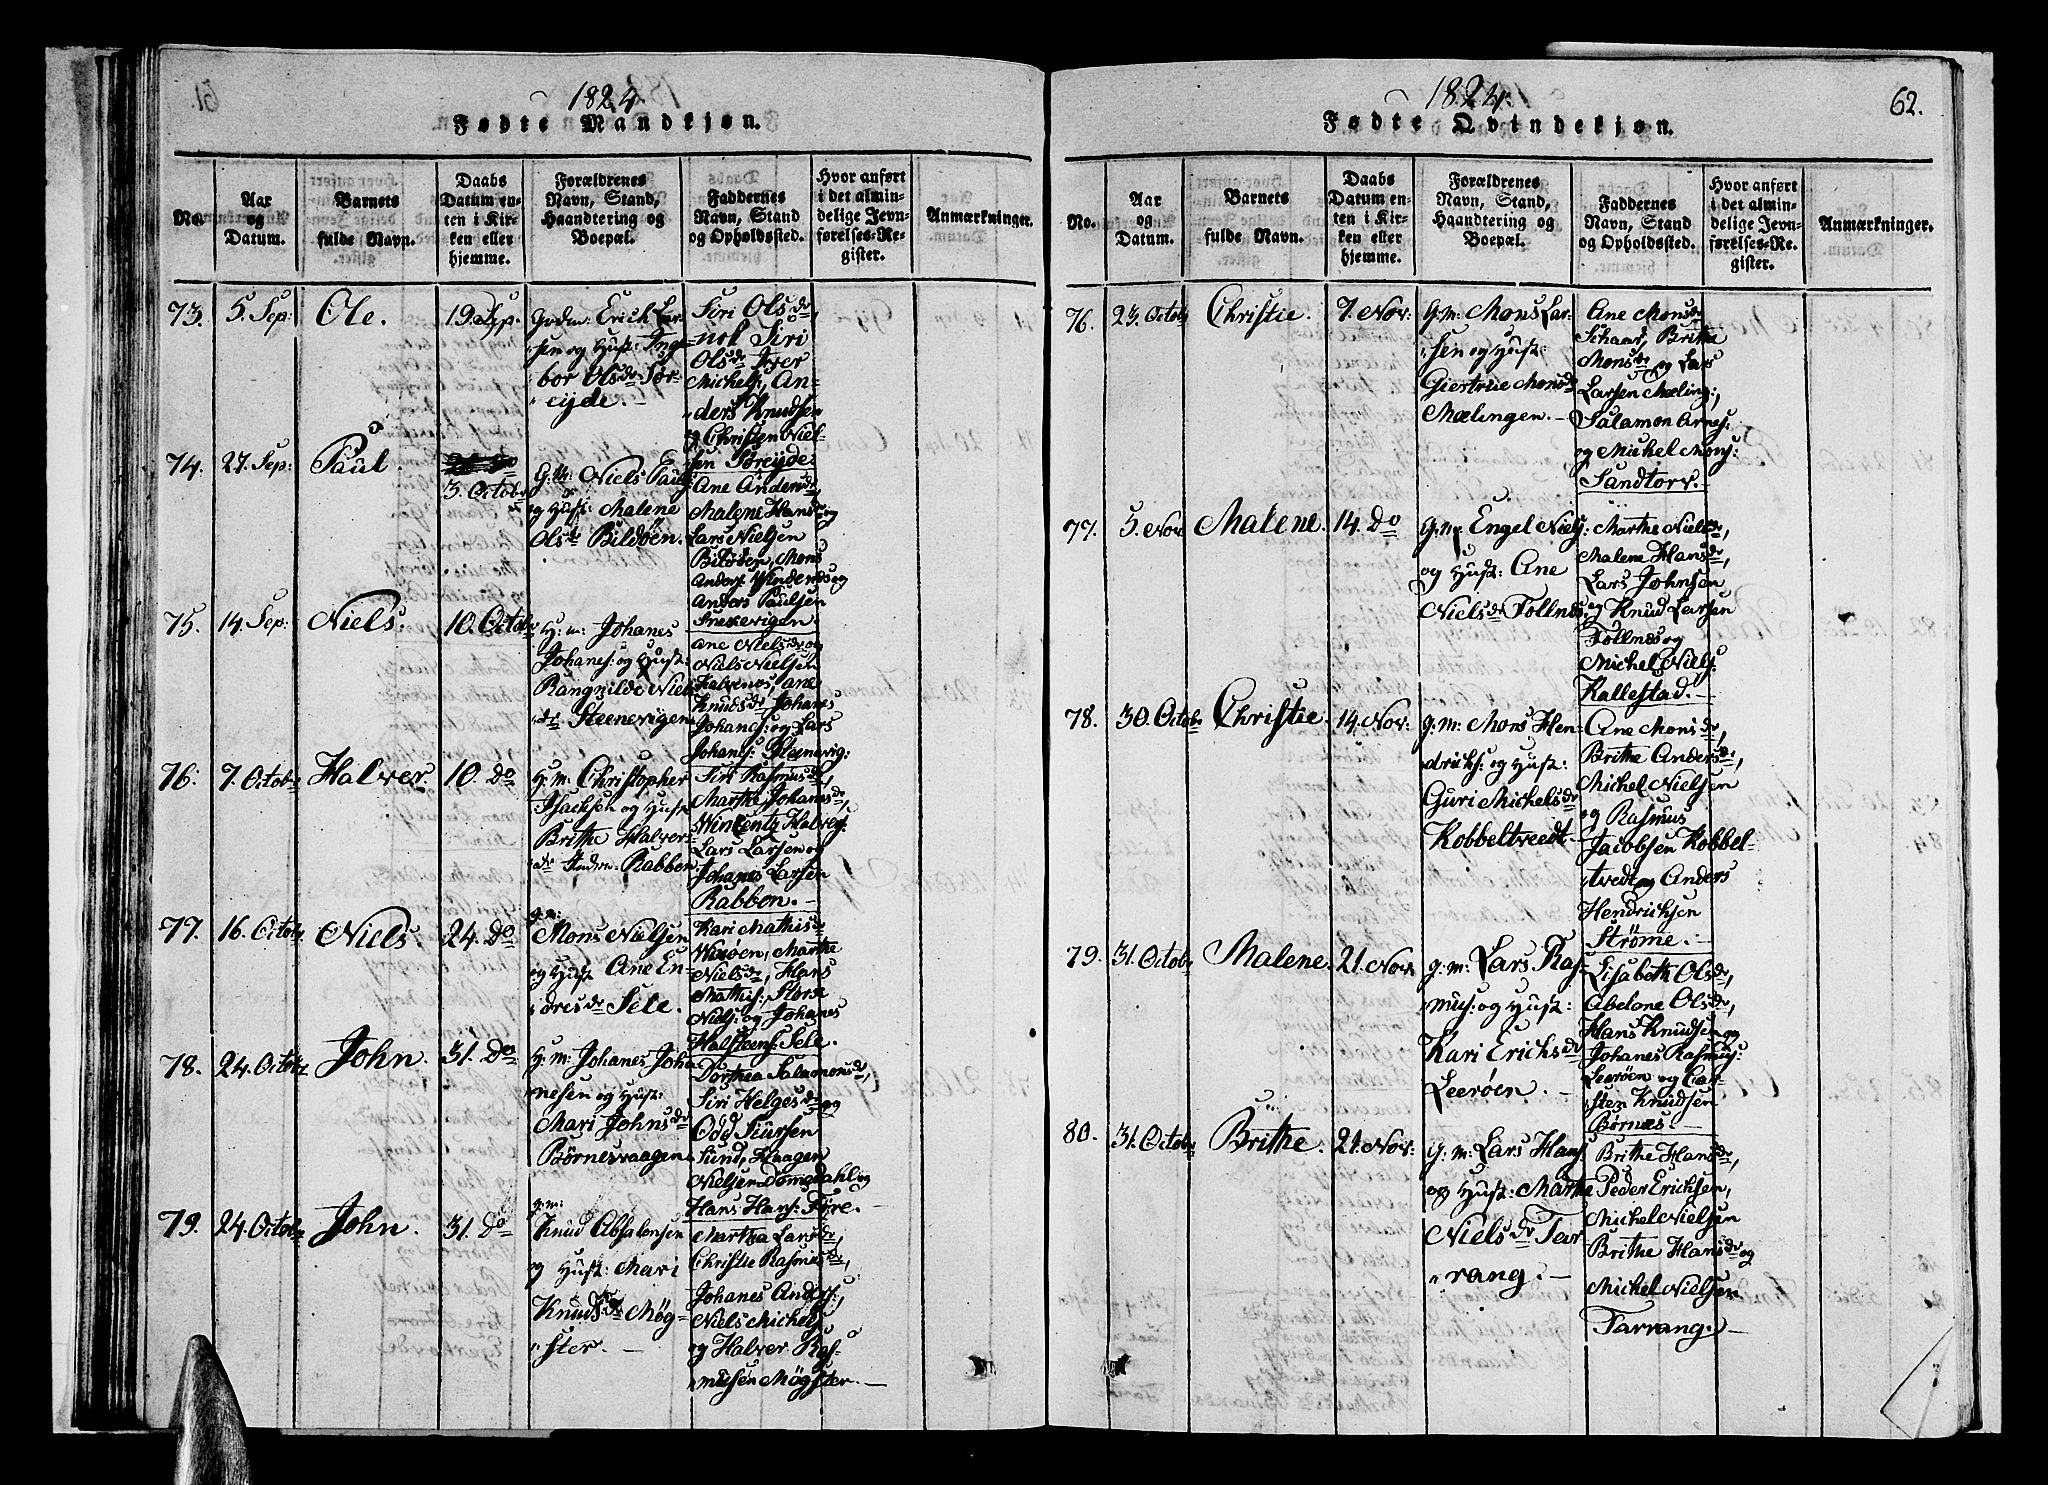 1824.
Fødte Mandkjøn.
No.
Aar
og
Datum.
Barnets
fulde Navn.
Daabs
Datum en-
ten i Kir-
ken eller
hjemme.
Forældrenes
Navn, Stand,
Haandtering og
Boepæl.
Faddernes
Navn, Stand
og Opholdssted.
Hvor anført
i det almin-
delige Jevn-
førelses-Re-
gister.
Anmærkninger.
73.
5. Sep:
Ole.
19. Sep.
Erich Lar-
sen og Hust: Inge-
bor Olsdr Sør-
eyde.
Siri Olsdr,
Siri
Olsdr Iver
Michels:, An-
ders Knudsen
og Christen Niel-
sen Søreyde.
74.
27. Sep:
Paul.
3. Octobr
G.M: Niels Pauls:
og Hust: Malene
Olsdr Bildøen.
Ane Andersdr,
Malene Hansdr og
Lars Nielsen
Bildøen, Mons
Anders: Windenes og
Anders Paulsen
Snekevigen.
75.
14. Sep:
Niels.
10. Octobr
G: m: Johanes
Johanes: og Hust:
Rangnilde Niels-
dr Steenevigen
Ane Nielsdr og
Niels Nielsen
Halvenes, ane
Knudsdr, Johanes
Johanes: og Lars
Johanes: Steenevig:
76.
7. Octobr
Halver.
10. Do
G: m: Christopher
Isachsen og Hust:
Brithe Halvers-
dr Indre Rabben
Siri Rasmusdr,
Marthe Johanesdr,
Wincentz Halvers:
Lars Larsen og
Johanes Larsen
Rabben.
77.
16. Octobr
Niels.
24. Do
g: m:
Mons Nielsen
og Hust Ane En-
dresdr Sele.
Kari Mathisdr
Wixøen, Marthe
Nielsdr, Hans
Mathis:
Niels: og Johanes
Halsteens: Sele.
78.
24. Octobr
John.
31. Do
G: m: Johanes Joha-
nesen og Hust:
Mari Johnsdr
Børnesvaagen
Dorthea Salamonsdr,
Siri Helgesdr og
Odd Siursen
Sund, Haagen
Nielsen Domsdahl og
Hans Hans: Føre.
79.
24. Octobr
John.
31. Do
g: m:
Knud Absalonsen
og Hust: Mari
Knudsdr Møg-
ster.
Martha Larsdr,
Christie Rasmusdr,
Johanes Anders:,
Niels Michels:
og Halver Ras-
musen Møgster.
1824.
62.
Fødte Qvindekjøn.
No.
Aar
og
Datum.
Barnets
fulde Navn.
Daabs
Datum en-
ten i Kir-
ken eller
hjemme.
Forældrenes
Navn, Stand,
Haandtering og
Boepæl.
Faddernes
Navn, Stand
og Opholdssted.
Hvor anført
i det almin-
delige Jevn-
førelses-Re-
gister.
Anmærkninger.
76.
23. Octobr
Christie.
7. Nov:
G: m: Mons Lar-
sen og Hust:
Giertrue Monsdr
Mælingen.
Ane Monsdr
Schaar, Brithe
Monsdr og Lars
Larsen Mæling:,
Salamon Arnes:
og Michel Mons:
Sandtorv.
77.
5. Nov
Malene.
14. Do
G: m: Engel Niels:
og Hust: Ane
Nielsdr Tollnes
Marthe Nielsdr,
Malene Hansdr,
Lars Johnsen
og Knud Larsen
Tollnes og
Michel Niels:
Kallestad.
78.
30. Octobr
Christie.
14. Nov:
g: m: Mons Hen-
drichs: og Hust:
Guri Michelsdr
Kobbeltvedt.
Ane Monsdr,
Brithe Andersdr,
Michel Nielsen
og Rasmus
Jacobsen Kobbel-
tvedt og Anders
Hendrichsen
Strøme.
79.
31. Octobr
Malene.
21. Nov
g: m: Lars Ras-
mus: og Hust:
Kari Erichsdr
Leerøen.
Lisabeth Olsdr,
Abelone Olsdr,
Hans Knudsen og
Johanes Rasmus:
Leerøen og Car-
sten Knudsen
Børnes.
80.
31. Octobr
Brithe.
21. Nov:
G: m: Lars Hans:
og Hust: Marthe
Nielsdr Tar-
rang.
Brithe Hansdr,
Peder Erichsen,
Michel Nielsen
Brithe Hansdr og
Michel Nielsen
Tarrang.